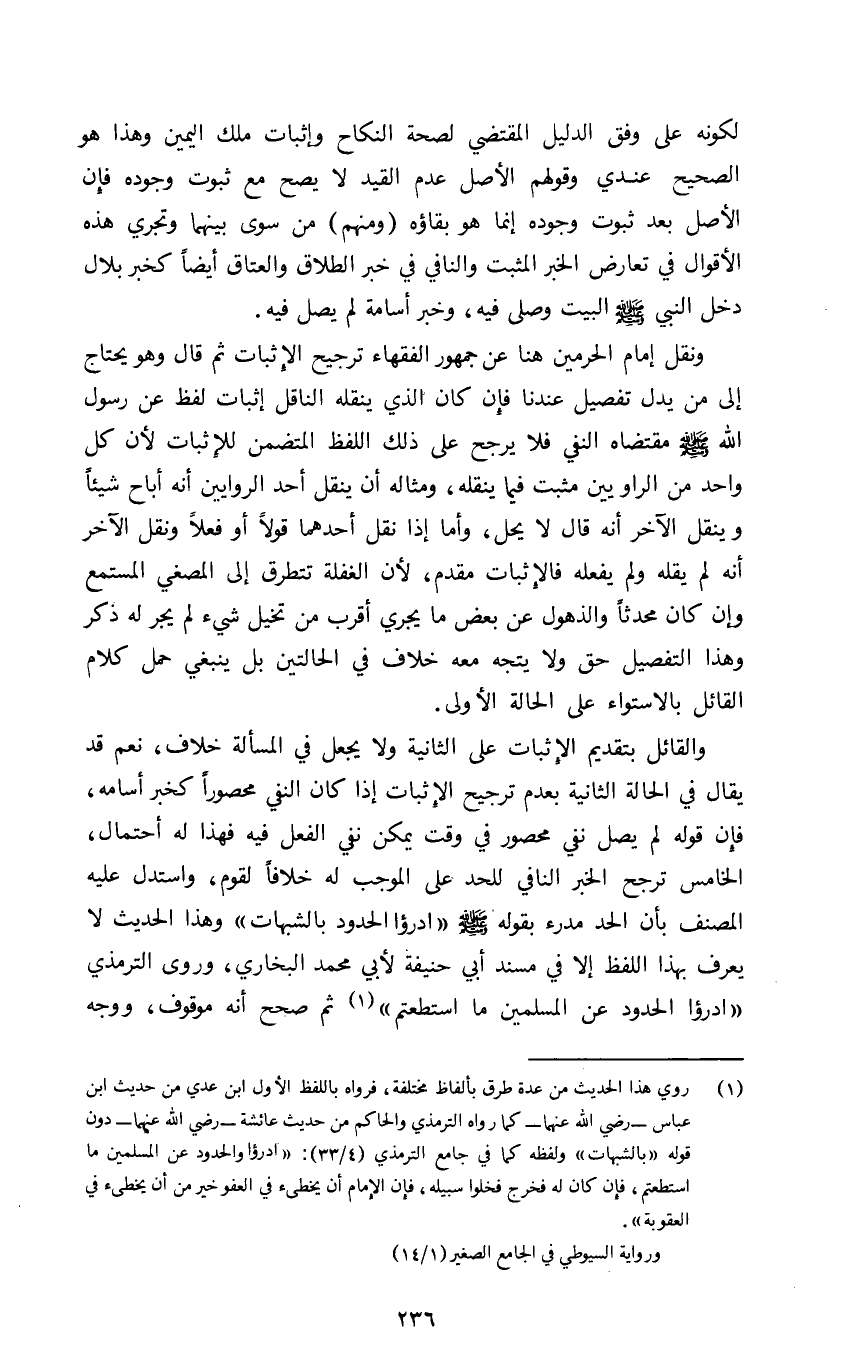 لكونه على وفق الدليل المقتضي لصحة النكاح وإثبات ملك اليمين وهذا هو
الصحيح عندي وقولهم الأصل عدم القيد لا يصح مع ثبوت وجوده فإن
الأصل بعد ثبوت وجوده إنما هو بقاؤه (ومنهم) من سوى بينهما وتجري هذه
الأقوال في تعارض الخبر المثبت والنافي في خبر الطلاق والعتاق أيضاً كخبر بلال
دخل النبي ﷺ البيت وصلى فيه، وخبر أسامة لم يصل فيه.
ونقل إمام الحرمين هنا عن جمهور الفقهاء ترجيح الإثبات ثم قال وهو يحتاج
إلى من يدل تفصيل عندنا فإن كان الذي ينقله الناقل إثبات لفظ عن رسول
الله ﷺ مقتضاه النفي فلا يرجح على ذلك اللفظ المتضمن للإثبات لأن كل
واحد من الراويين مثبت فيما ينقله، ومثاله أن ينقل أحد الروايين أنه أباح شيئاً
وينقل الآخر أنه قال لا يحل، وأما إذا نقل أحدهما قولاً أو فعلاً ونقل الآخر
أنه لم يقله ولم يفعله فالإثبات مقدم، لأن الغفلة تتطرق إلى المصغي المستمع
وإن كان محدثاً والذهول عن بعض ما يجري أقرب من تخيل شيء لم يجر له ذكر
وهذا التفصيل حق ولا يتجه معه خلاف في الحالتين بل ينبغي حمل كلام
القائل بالاستواء على الحالة الأولى.
والقائل بتقديم الإثبات على الثانية ولا يجعل في المسألة خلاف، نعم قد
يقال في الحالة الثانية بعدم ترجيح الإثبات إذا كان النفي محصوراً كخبر أسامه،
فإن قوله لم يصل نفي محصور في وقت يمكن نفي الفعل فيه فهذا له أحتمال،
الخامس ترجح الخبر النافي للحد على الموجب له خلافاً لقوم، واستدل عليه
المصنف بأن الحد مدرء بقوله ﷺ «ادرؤا الحدود بالشبهات» وهذا الحديث لا
يعرف بهذا اللفظ إلا في مسند أبي حنيفة لأبي محمد البخاري، وروى الترمذي
«ادرؤا الحدود عن المسلمين ما استطعتم»(١) ثم صحح أنه موقوف، ووجه
(١) روي هذا الحديث من عدة طرق بألفاظ مختلفة، فرواه باللفظ الأول ابن عدي من حديث ابن
عباس ــ رضي الله عنهما ــ كما رواه الترمذي والحاكم من حديث عائشة ــ رضي الله عنها ــ دون
قوله «بالشبهات» ولفظه كما في جامع الترمذي (٣٣/٤): «ادرؤا والحدود عن المسلمين ما
استطعتم، فإن كان له فخرج فخلوا سبيله، فإن الإمام أن يخطىء في العفو خير من أن يخطىء في
العقوبة».
ورواية السيوطي في الجامع الصغير (١٤/١)
٢٣٦